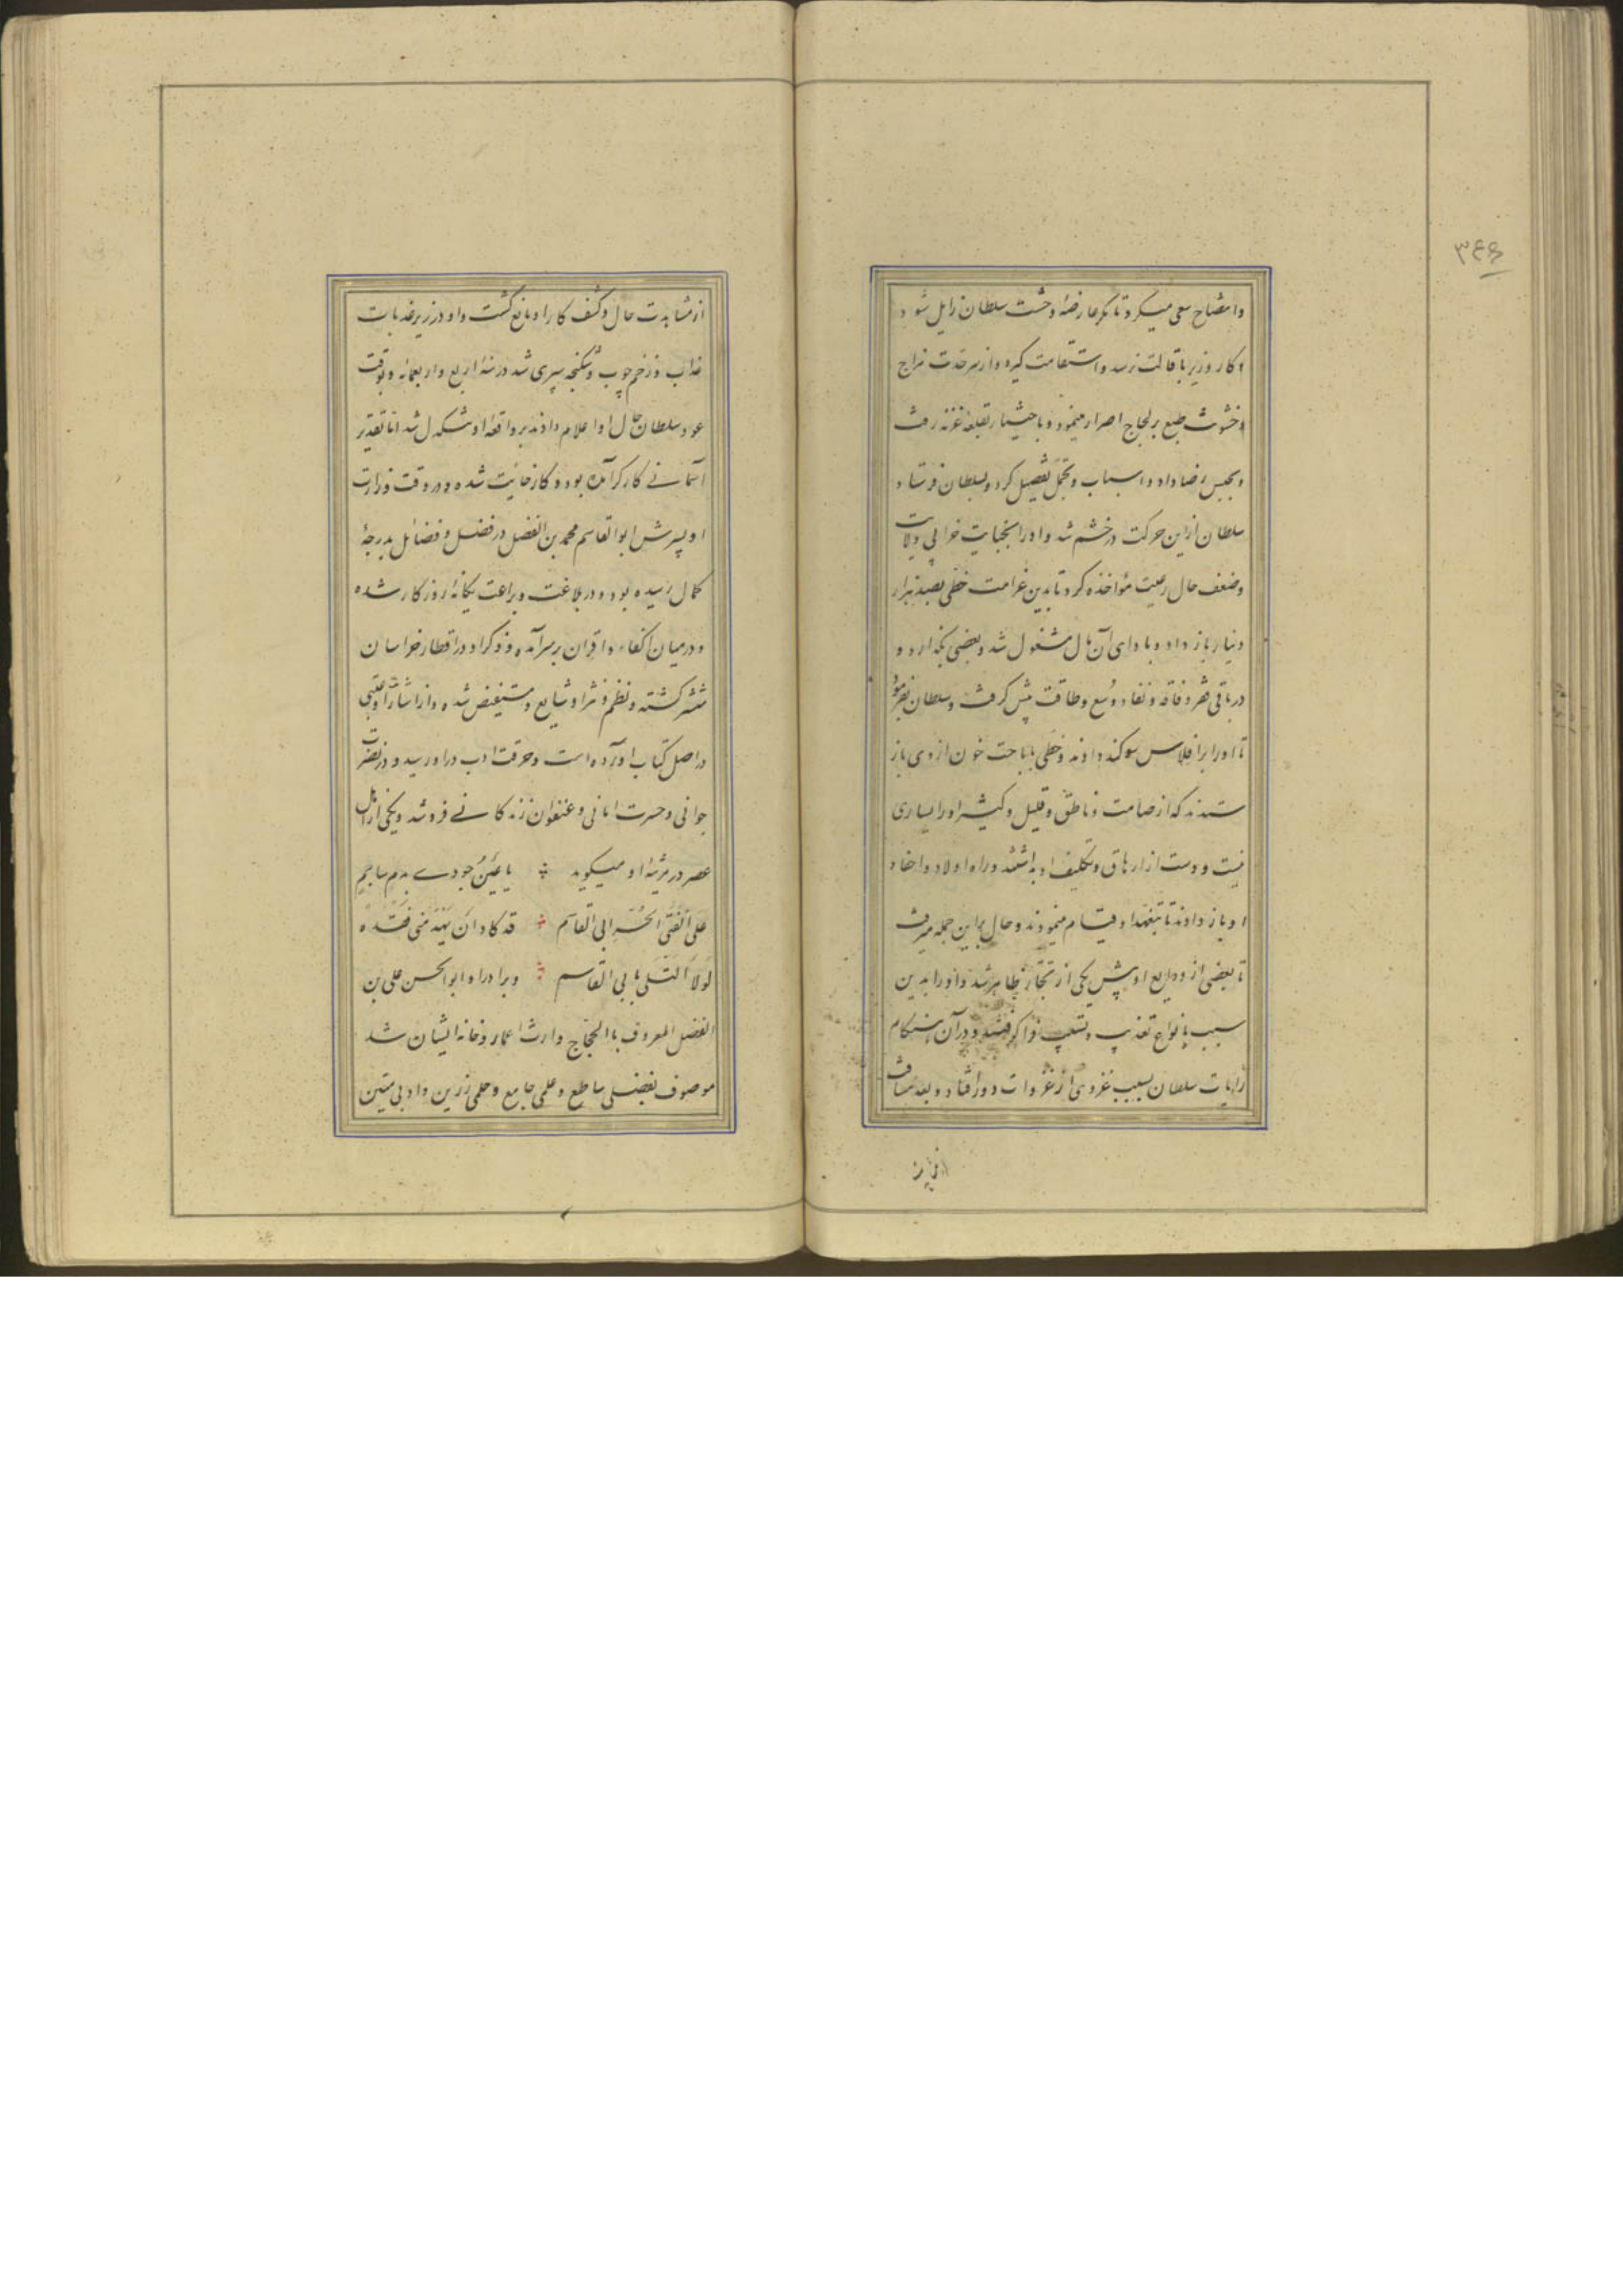 ۳۴۶
و استصلاح سعی میکرد تا مگر عارضهٔ وحشت سلطان زایل شود و
کار وزیر باقالت رسد و استقامت گیرد و از سر حدت مزاج
و خشونت طبع بر لجاج اصرار مینمود و باختیار بقلعهٔ غزنه رفت
و بحبس رضا داد و اسباب و تجمل تفصیل کرد و بسلطان فرستاد
سلطان ازین حرکت در خشم شد و او را بجنایت خرابی ولایت
و ضعف حال رعیت مؤاخذه کرد تا بدین غرامت خطی بصد هزار
دینار باز داد و بادای آن مال مشغول شد و بعضی بگذارد و
در باقی فقر و فاقه و نفاد وسع و طاقت پیش گرفت و سلطان بفرمود
تا او را بر افلاس سوگند دادند و خطی باباحت خون از وی باز
ستدند که از صامت و ناطق و قلیل و کثیر او را یساری
نیست و دست از ارهاق و تکلیف او بداشتند و راه اولاد و احفاد
او باز دادند تا بتعهد او قیام مینمودند و حال براین جمله میرفت
تا بعضی از ودایع او پیش یکی از تجار ظاهر شد و او را بدین
سبب بانواع تعذیب و تشدید فرا گرفتند و در آن هنگام
رایات سلطان بسبب غزوی از غزوات دور افتاد و بعد مسافت
از مشاهدت حال و کشف کار او مانع گشت و او در زیر عذبات
عذاب و زخم چوب و شکنجه سپری شد در سنه اربع و اربعمائه و بوقت
عود سلطان حال او اعلام دادند بر واقعه او تنگدل شد اما تقدیر
آسمانی کارگر آمده بود و کار فایت شده و در وقت وزارت
او پسرش ابوالقاسم محمد بن الفضل در فضل و فضائل بدرجهٔ
کمال رسیده بود و در بلاغت و براعت یگانهٔ روزگار شده
و در میان اکفاء و اقران برسر آمده و ذکر او در اقطار خراسان
منتشر گشته و نظم و نثر او شایع و مستفیض شده و از اشارات او عتبی
در اصل کتاب آورده است و حرقت ادب در او رسید و در نضرت
جوانی و حسرت امانی و عنفوان زندگانی فرو شد و یکی از افاضل
عصر در مرثیهٔ او میگوید ؞ یا عین جودی بدم ساجم
علی الفتی الحر ابی القاسم ؞ قد کاد ان یهدمنی فقده
لولا التسلی بابی القاسم ؞ و برادر او ابوالحسن علی بن
الفضل المعروف بالحجاج وارث اعمار و خانه ایشان شد
موصوف بفضلی ساطع و علمی جامع و حلمی رزین و ادبی متین